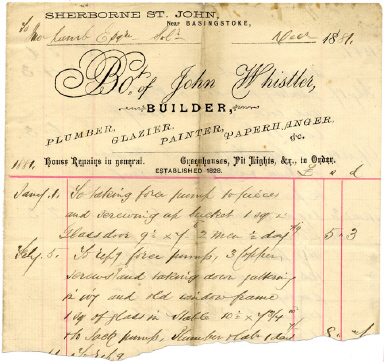 SHERBORNE ST. JOHN,
Near BASINGSTOKE,
To
Lamb Esqre 188 .
Bot. of John Whistler,
BUILDER,
PLUMBER, GLAZIER, PAINTER, PAPERHANGER,
&c.
House Repairs in general. Greenhouses, Pit Lights, &c., to Order.
ESTABLISHED 1828. £ s d
Jany. 1. To taking force pump to pieces
and screwing up bucket 1 sq in
Glass door 9½ x 7 2 men ½ day 5 . 3
Feby. 5. To force pump, 3 Copper
Screws and taking down guttering
in ivy and old window frame
1 sq of glass in Stable 10½ x
to Jack pump, Plumber & lab 1 day